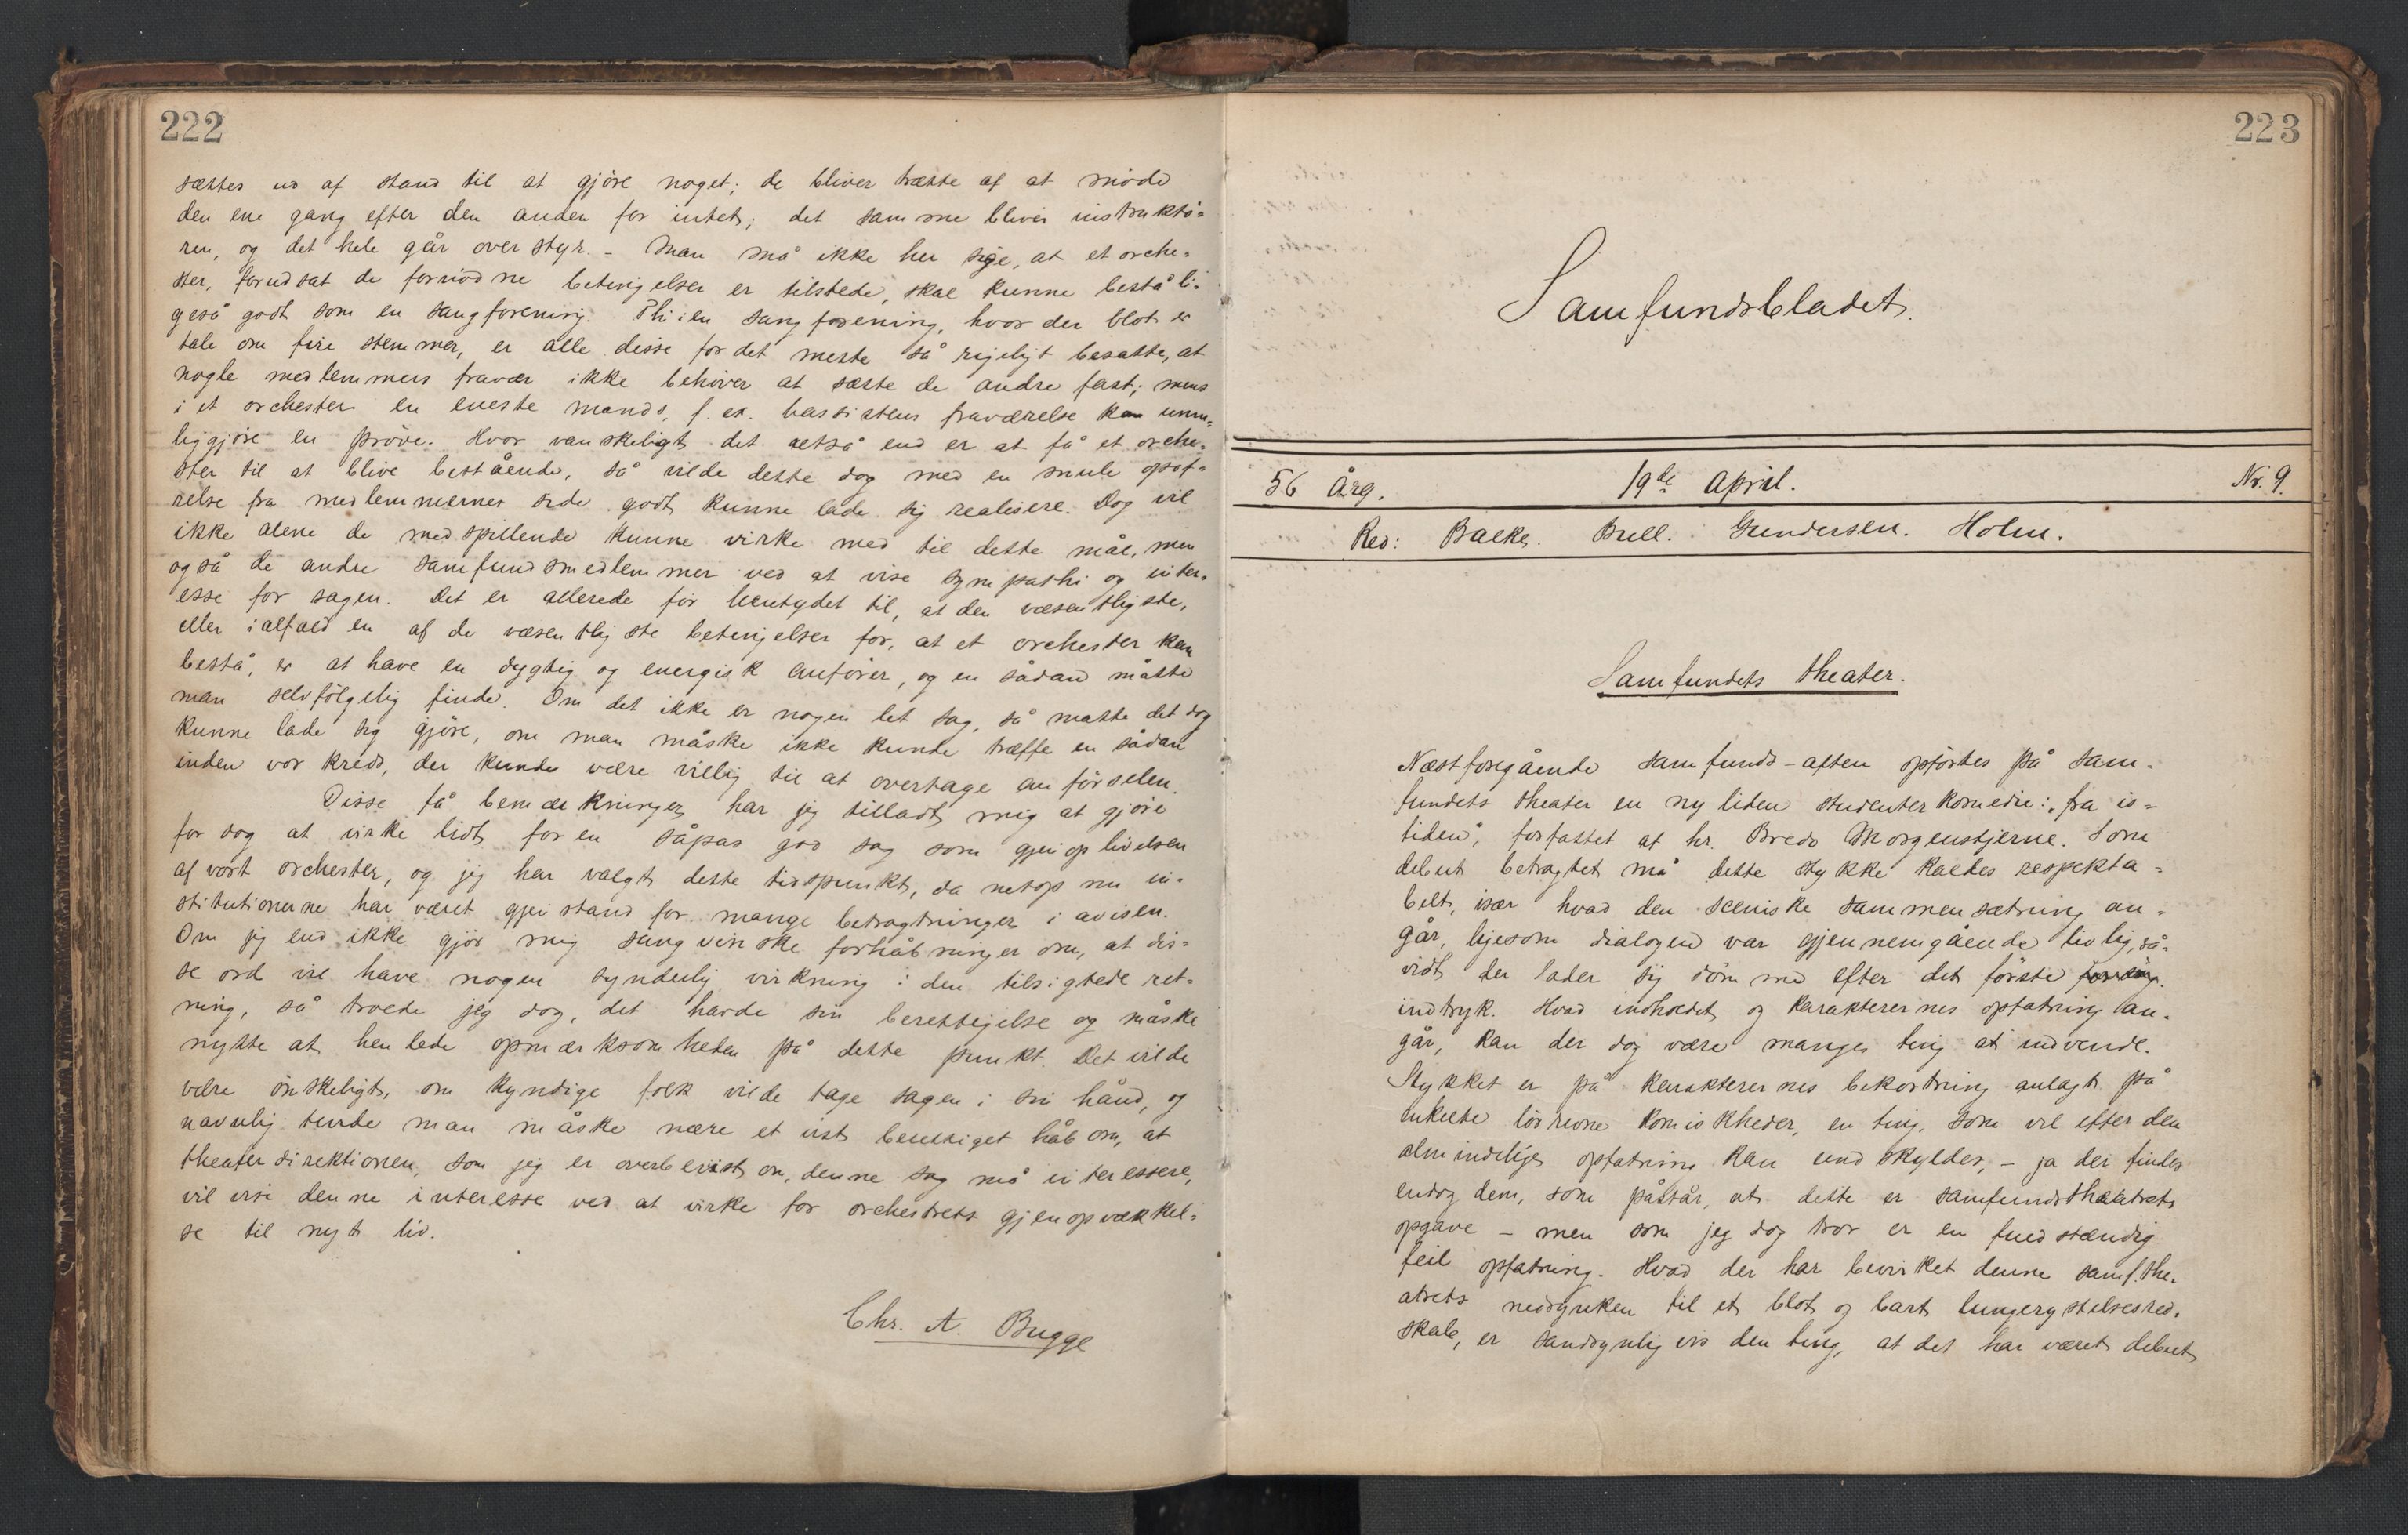 222
sættes ud af stand til at gjöre noget; de bliver trætte af at møde
den ene gang efter den anden for intet; det samme bliver instruktö-
ren, og det hele går over styr. - Man må ikke her sige, at et orche-
ster, forudsat de fornødne betingelser er tilstede, skal kunne bestå li-
geså godt som en sangforening. Thi i en sangforening, hvor der blot er
tale om fire stemmer, er alle disse for det meste så rigeligt besatte, at
nogle medlemmers fravær ikke behöver at sætte de andre fast; mens
i et orchester en eneste mands, f. ex. bassistens fraværelse kan umu-
liggjöre en pröve. Hvor vanskeligt det altså end er at få et orche-
ster til at blive bestående, så vilde dette dog med en smule opof-
relse fra medlemmernes side godt kunne lade sig realisere. Dog vil
ikke alene de medspillende kunne virke med til dette mål, men
også de andre samfundsmedlemmer ved at vise sympathi og inter-
esse for sagen. Det er allerede för hentydet til, at den væsentligste,
eller ialfald en af de væsentligste betingelser for, at et orchester kan
bestå, er at have en dygtig og energisk anförer, og en sådan måtte
man selvfölgelig finde. Om det ikke er nogen let sag, så måtte det dog
kunne lade sig gjöre, om man måske ikke kunde træffe en sådan
inden vor kreds, der kunde være villig til at overtage anförselen.
Disse få bemærkninger har jeg tilladt mig at gjöre
for dog at virke lidt for en såpas god sag som gjenoplivelsen
af vort orchester, og jeg har valgt dette tidspunkt, da netop nu in-
stitutionerne har været gjenstand for mange betragtninger i avisen.
Om jeg end ikke gjör mig sangvinske forhåbninger om, at dis-
se ord vil have nogen synderlig virkning i den tilsigtede ret-
ning, så troede jeg dog, det havde sin berettigelse og måske
nytte at henlede opmærksomheden på dette punkt. Det vilde
være önskeligt, om kyndige folk vilde tage sagen i sin hånd, og
navnlig turde man måske nære et vist berettiget håb om, at
theaterdirektionen, som jeg er overbevist om, denne sag må interessere,
vil vise denne interesse ved at virke for orchestrets gjenopvækkel-
se til nyt liv.
Chr. A. Bugge
223
Samfundsbladet.
56 Årg. 19de April. Nr. 9.
Red: Balke. Bull. Gundersen. Holm.
Samfundets theater.
Næstforegående samfunds-aften opförtes på sam-
fundets theater en ny liden studenterkomedie: "fra is-
tiden", forfattet af hr. Bredo Morgenstjerne. Som
debut betragtet må dette stykke kaldes respekta-
belt, især hvad den sceniske sammensætning an-
går, ligesom dialogen var gjennemgående livlig, så-
vidt der lader sig dömme efter det förste
indtryk. Hvad indholdet og karakterernes opfatning an-
går, kan der dog være mange ting at indvende.
Stykket er på karakterernes bekostning anlagt på
enkelte lösrevne komiskheder, en ting, som vel efter den
almindelige opfatning kan undskyldes, - ja der findes
endog dem, som påstår, at dette er samfundstheatrets
opgave - men som jeg dog tror er en fuldstændig
feil opfatning. Hvad der har bevirket denne samf.the-
atrets nedsynken til et blot og bart lungerystelsesred-
skab, er sandsynligvis den ting, at det har været debuet